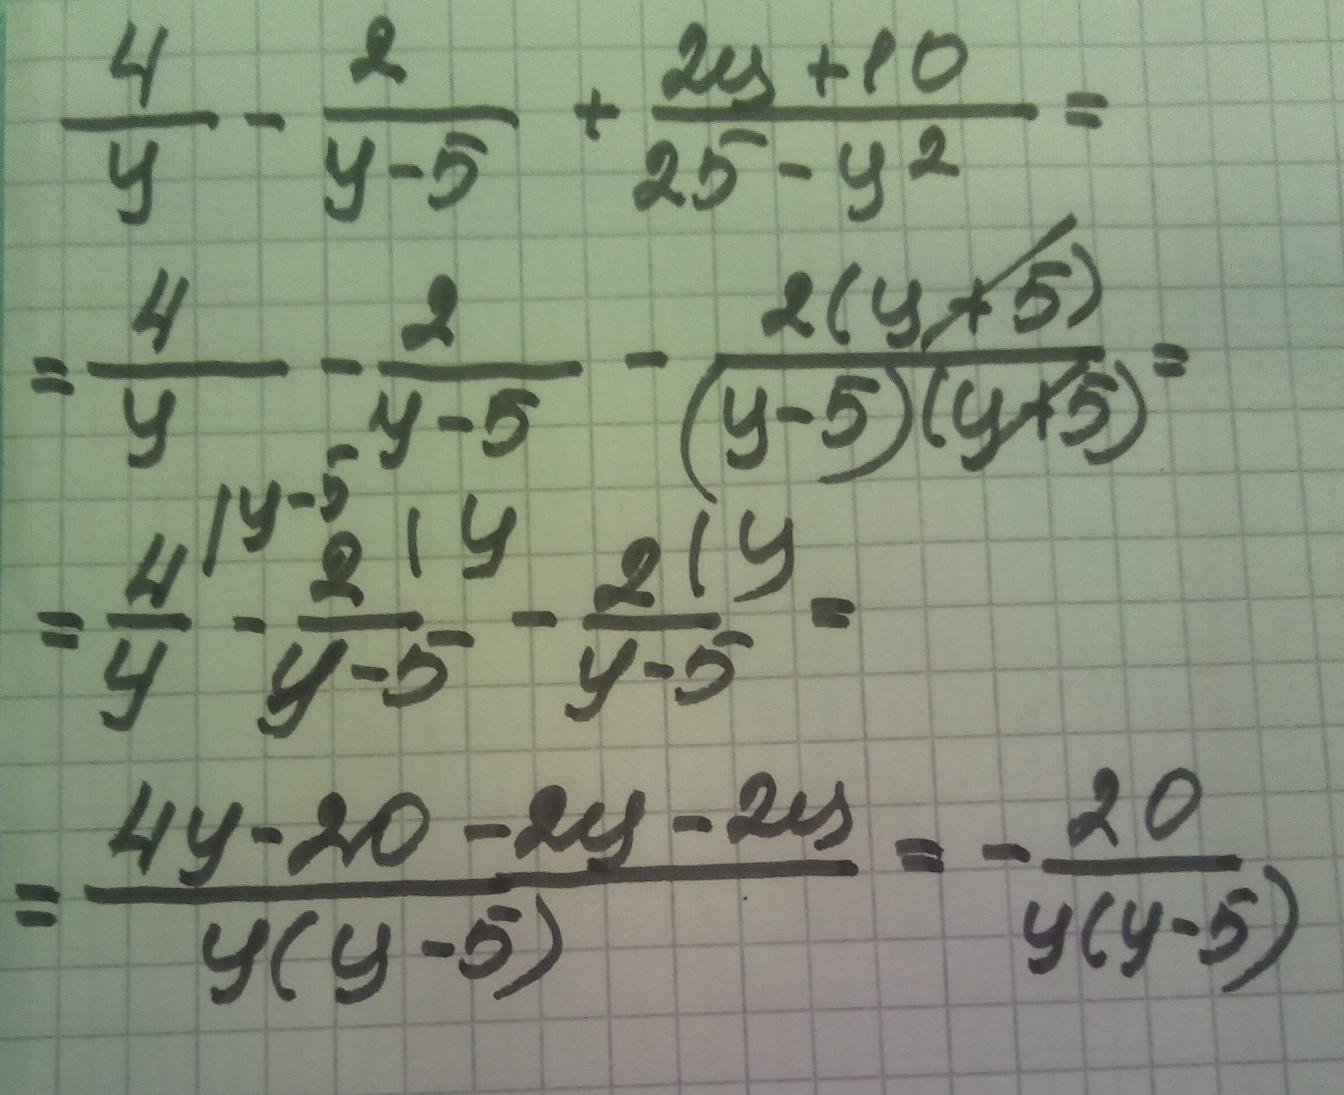 4/y - 2/(y-5) + (2y+10)/(25-y²) =
= 4/y - 2/(y-5) - 2(y+5)/((y-5)(y+5)) =
= 4/y |y-5 - 2/(y-5) |y - 2/(y-5) |y =
= (4y-20-2y-2y)/(y(y-5)) = - 20/(y(y-5))